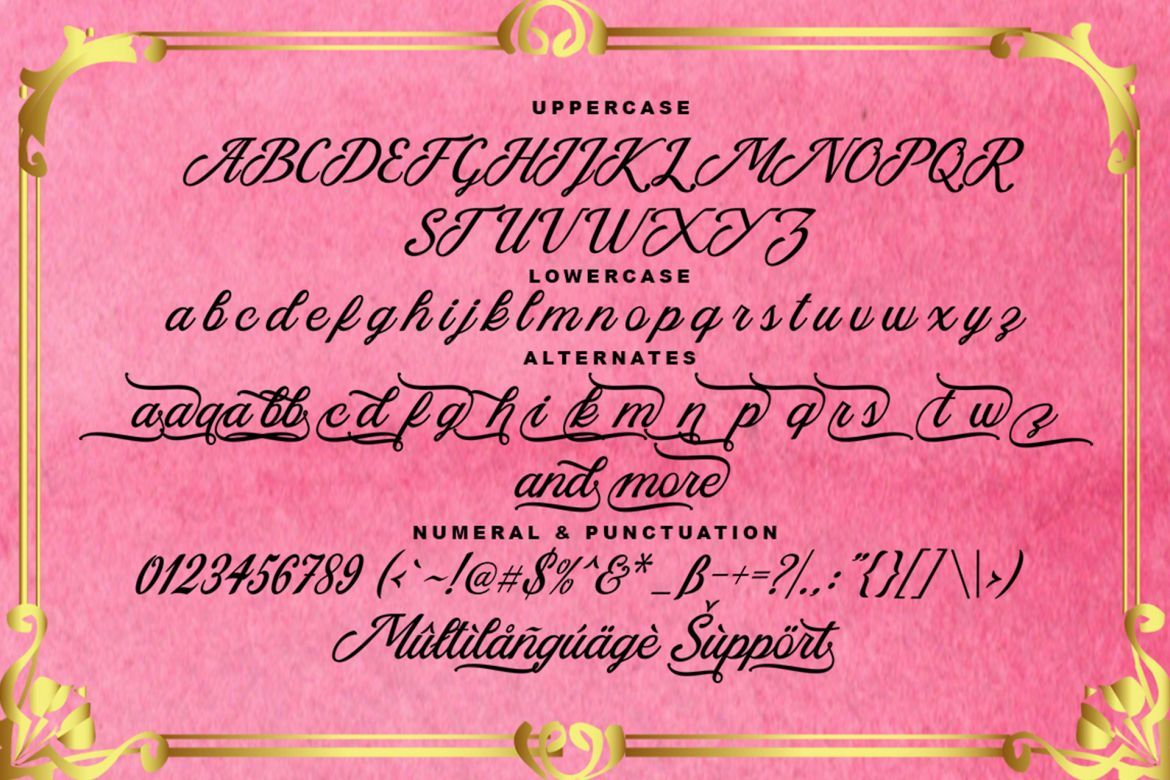 UPPERCASE
ABCDEFGHIJKLMNOPQR
STUVWXYZ
LOWERCASE
abcdefghijklmnopqrstuvwxyz
ALTERNATES
aaqabb cdfghikmnpqrs twz
and more
NUMERAL & PUNCTUATION
0123456789 (<`~!@#$%^&*_ß-+=?/.,:"{}[]\|>)
Mûltìlåñgúägè Šùppört